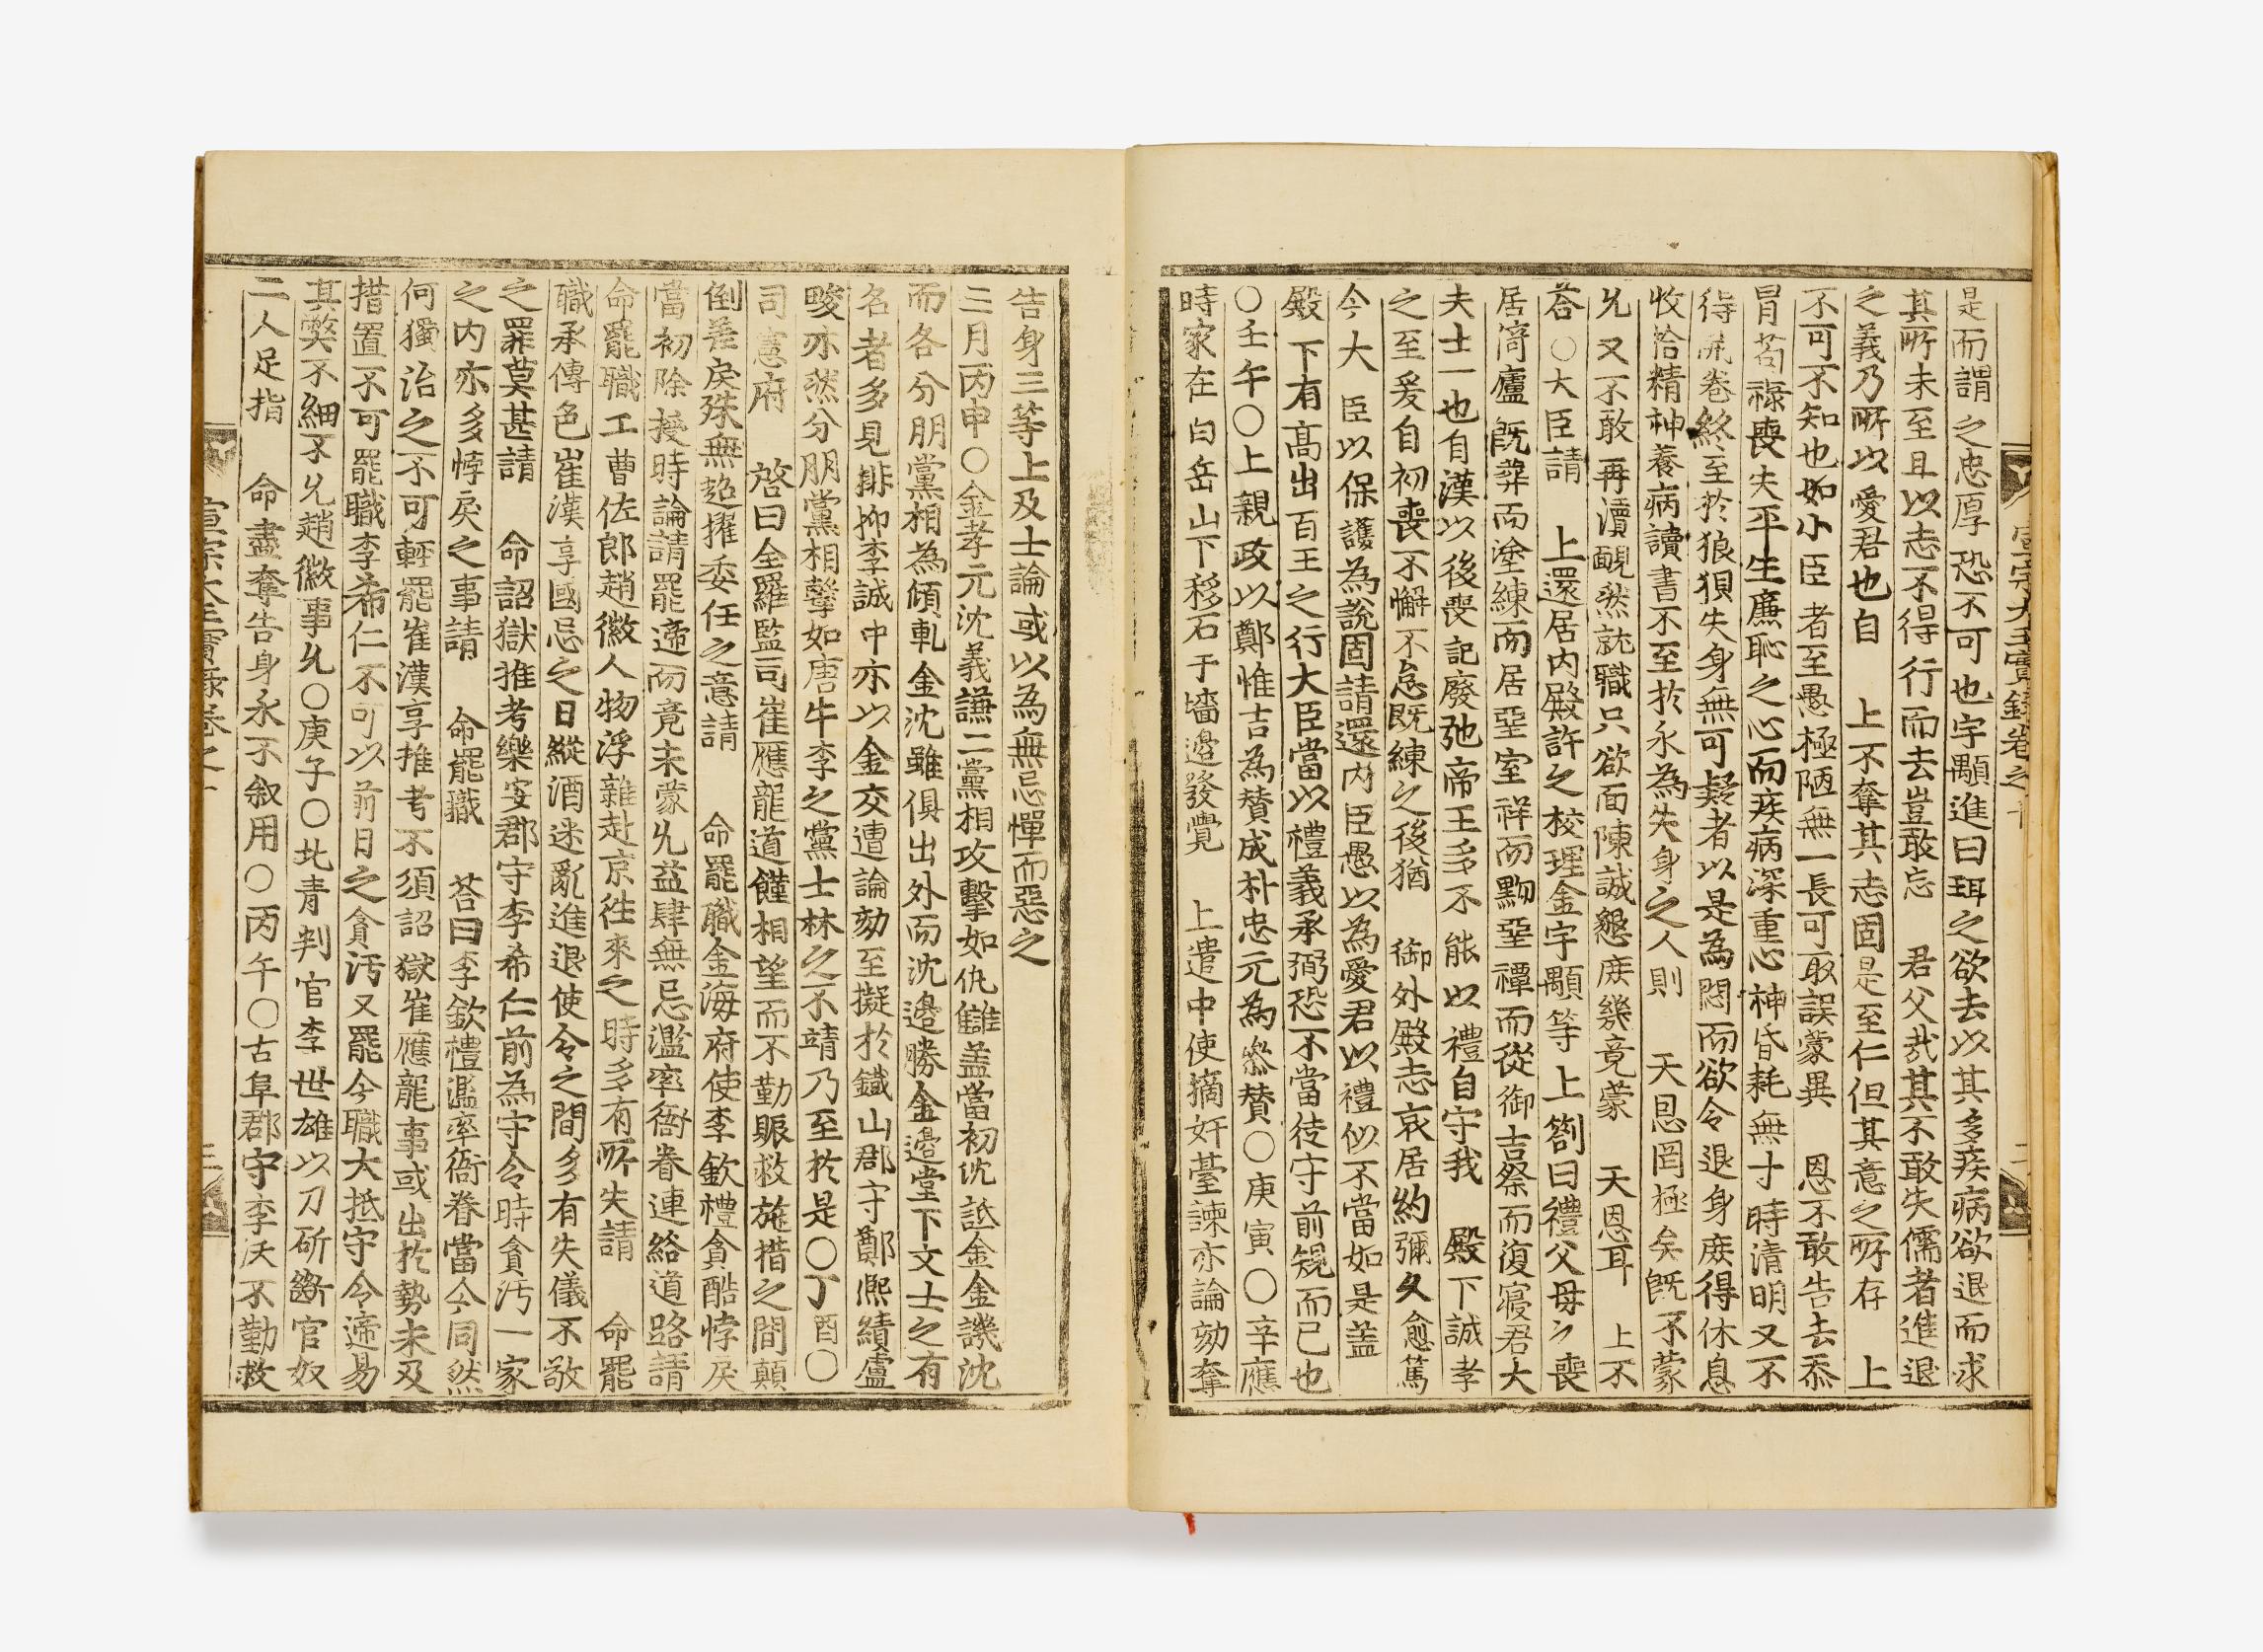 宣宗大王實錄卷之十 二
是而謂之忠厚恐不可也宇顒進曰珥之欲去以其多疾病欲退而求
其所未至且以志不得行而去豈敢忘 君父哉其不敢失儒者進退
之義乃所以愛君也自 上不奪其志固是至仁但其意之所存 上
不可不知也如小臣者至愚極陋無一長可取誤蒙異 恩不敢告去忝
冒苟祿喪失平生廉恥之心而疾病深重心神昏耗無寸時清明又不
得開卷終至於狼狽失身無可疑者以是為悶而欲令退身庶得休息
收恰精神養病讀書不至於永為失身之人則 天恩罔極矣旣不蒙
允又不敢再瀆靦然就職只欲面陳誠懇庶幾竟蒙 天恩耳 上不
荅○大臣請 上還居內殿許之校理金宇顒等上劄曰禮父母之喪
居倚廬旣葬而塗練而居堊室祥而黝堊禫而從御吉祭而復寢君大
夫士一也自漢以後喪記廢弛帝王多不能以禮自守我 殿下誠孝
之至爰自初喪不懈不怠旣練之後猶 御外殿志哀居約彌久愈篤
今大 臣以保護為說固請還內臣愚以為愛君以禮似不當如是盖
殿 下有高出百王之行大臣當以禮義承弼恐不當徒守前規而已也
○壬午○上親政以鄭惟吉為贊成朴忠元為叅贊○庚寅○辛應
時家在白岳山下移石于墻邊發覺 上遣中使摘奸臺諫亦論劾奪
告身三等上及士論或以為無忌憚而惡之
三月丙申○金孝元沈義謙二黨相攻擊如仇讎盖當初沈詆金金譏沈
而各分朋黨相為傾軋金沈雖俱出外而沈邊勝金邊堂下文士之有
名者多見排抑李誠中亦以金交遭論劾至擬於鐵山郡守鄭熙績盧
晙亦然分朋黨相擊如唐牛李之黨士林之不靖乃至於是○丁酉○
司憲府 啓曰全羅監司崔應龍道饉相望而不勤賑救施措之間顛
倒差戾殊無超擢委任之意請 命罷職金海府使李欽禮貪酷悖戾
當初除授時論請罷遞而竟未蒙允益肆無忌濫率衙眷連絡道路請
命罷職工曹佐郎趙徽人物浮雜赴京往來之時多有所失請 命罷
職承傳色崔漢亨國忌之日縱酒迷亂進退使令之間多有失儀不敬
之罪莫甚請 命詔獄推考樂安郡守李希仁前為守令時貪汚一家
之內亦多悖戾之事請 命罷職 荅曰李欽禮濫率衙眷當今同然
何獨治之不可輕罷崔漢亨推考不須詔獄崔應龍事或出於勢未及
措置不可罷職李希仁不可以前日之貪汚又罷今職大抵守令遞易
其弊不細不允趙徽事允○庚子○北青判官李世雄以刀斫斷官奴
二人足指 命盡奪告身永不敘用○丙午○古阜郡守李沃不勤救
宣宗大王實錄卷之十 三